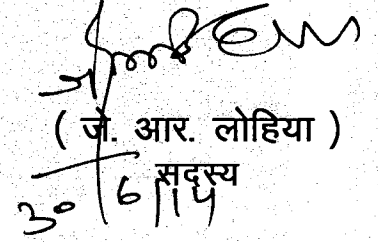 ( जे. आर. लोहिया )
सदस्य
30/6/14